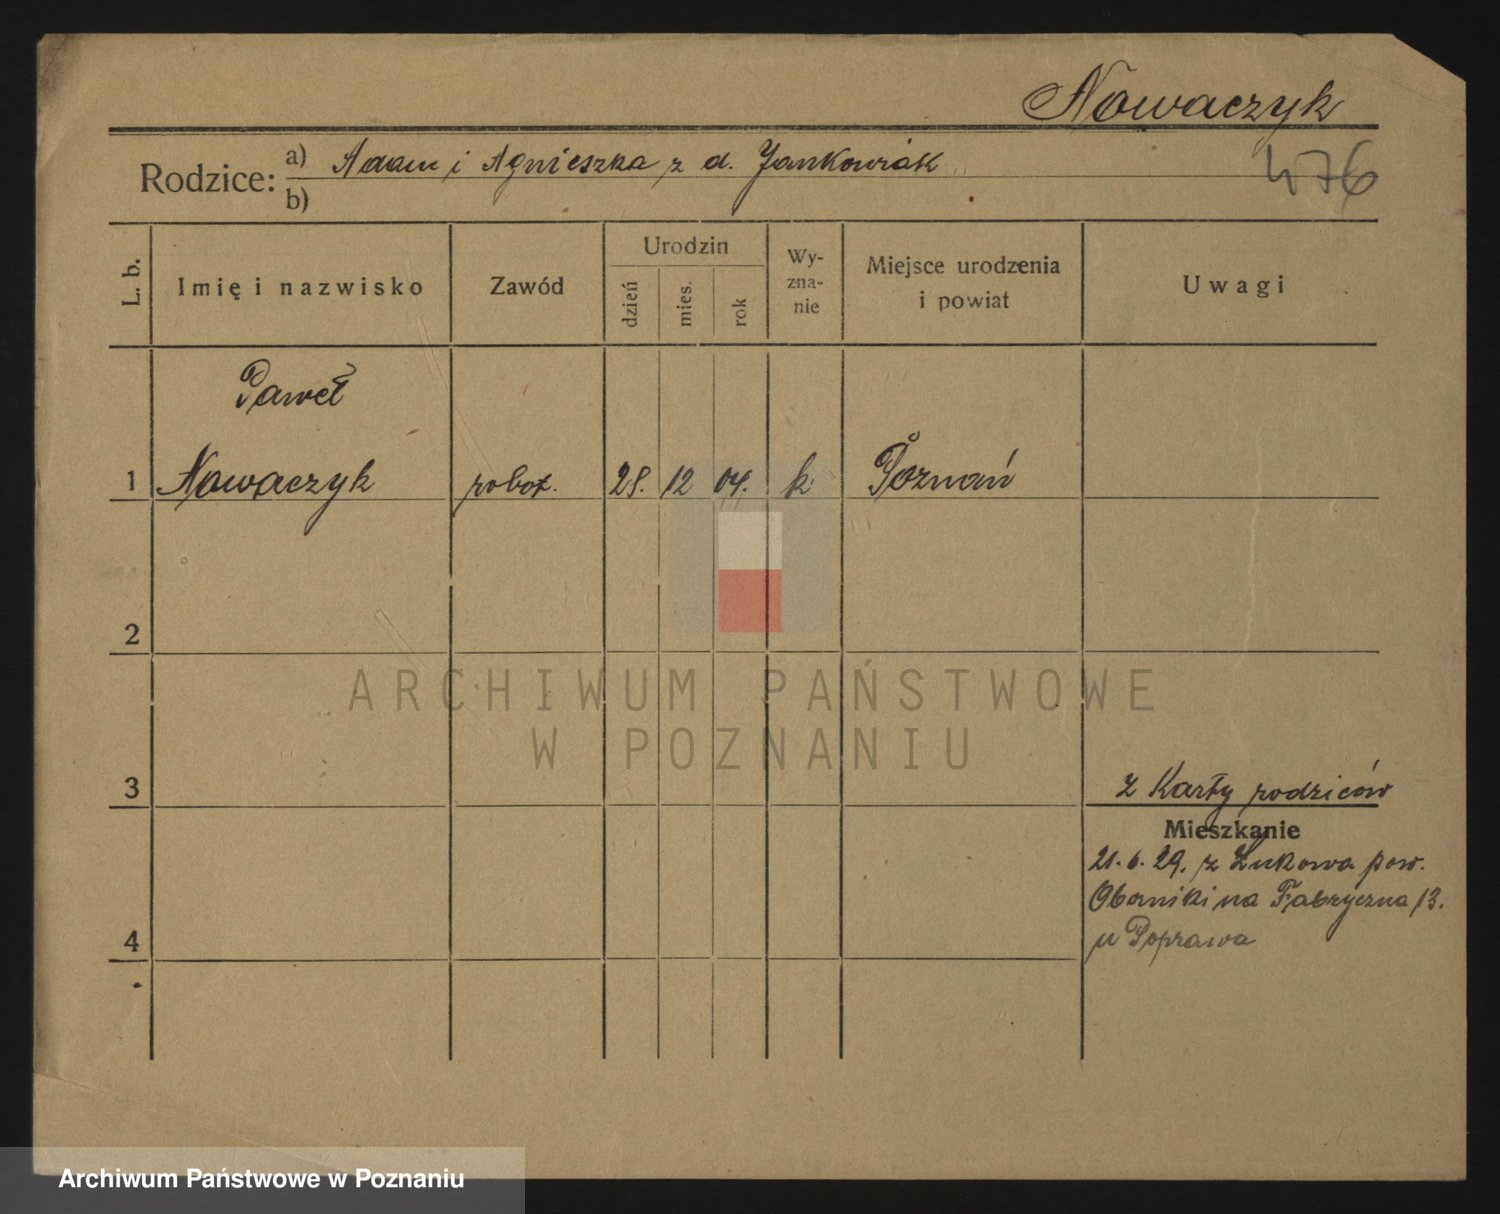 Nowaczyk
476
Rodzice: a) Adam i Agnieszka z d. Jankowiak
b)
L. b.
Imię i nazwisko
Zawód
Urodzin
dzień
mies.
rok
Wy-
zna-
nie
Miejsce urodzenia
i powiat
Uwagi
Paweł
1 Nowaczyk robot. 28. 12 04. k Poznań
2
ARCHIWUM PAŃSTWOWE
W POZNANIU
3
z Karty rodziców
Mieszkanie
21.6.29. z Łukowa pow.
Oborniki na Fabryczna 13.
u Poprawa
4
Archiwum Państwowe w Poznaniu